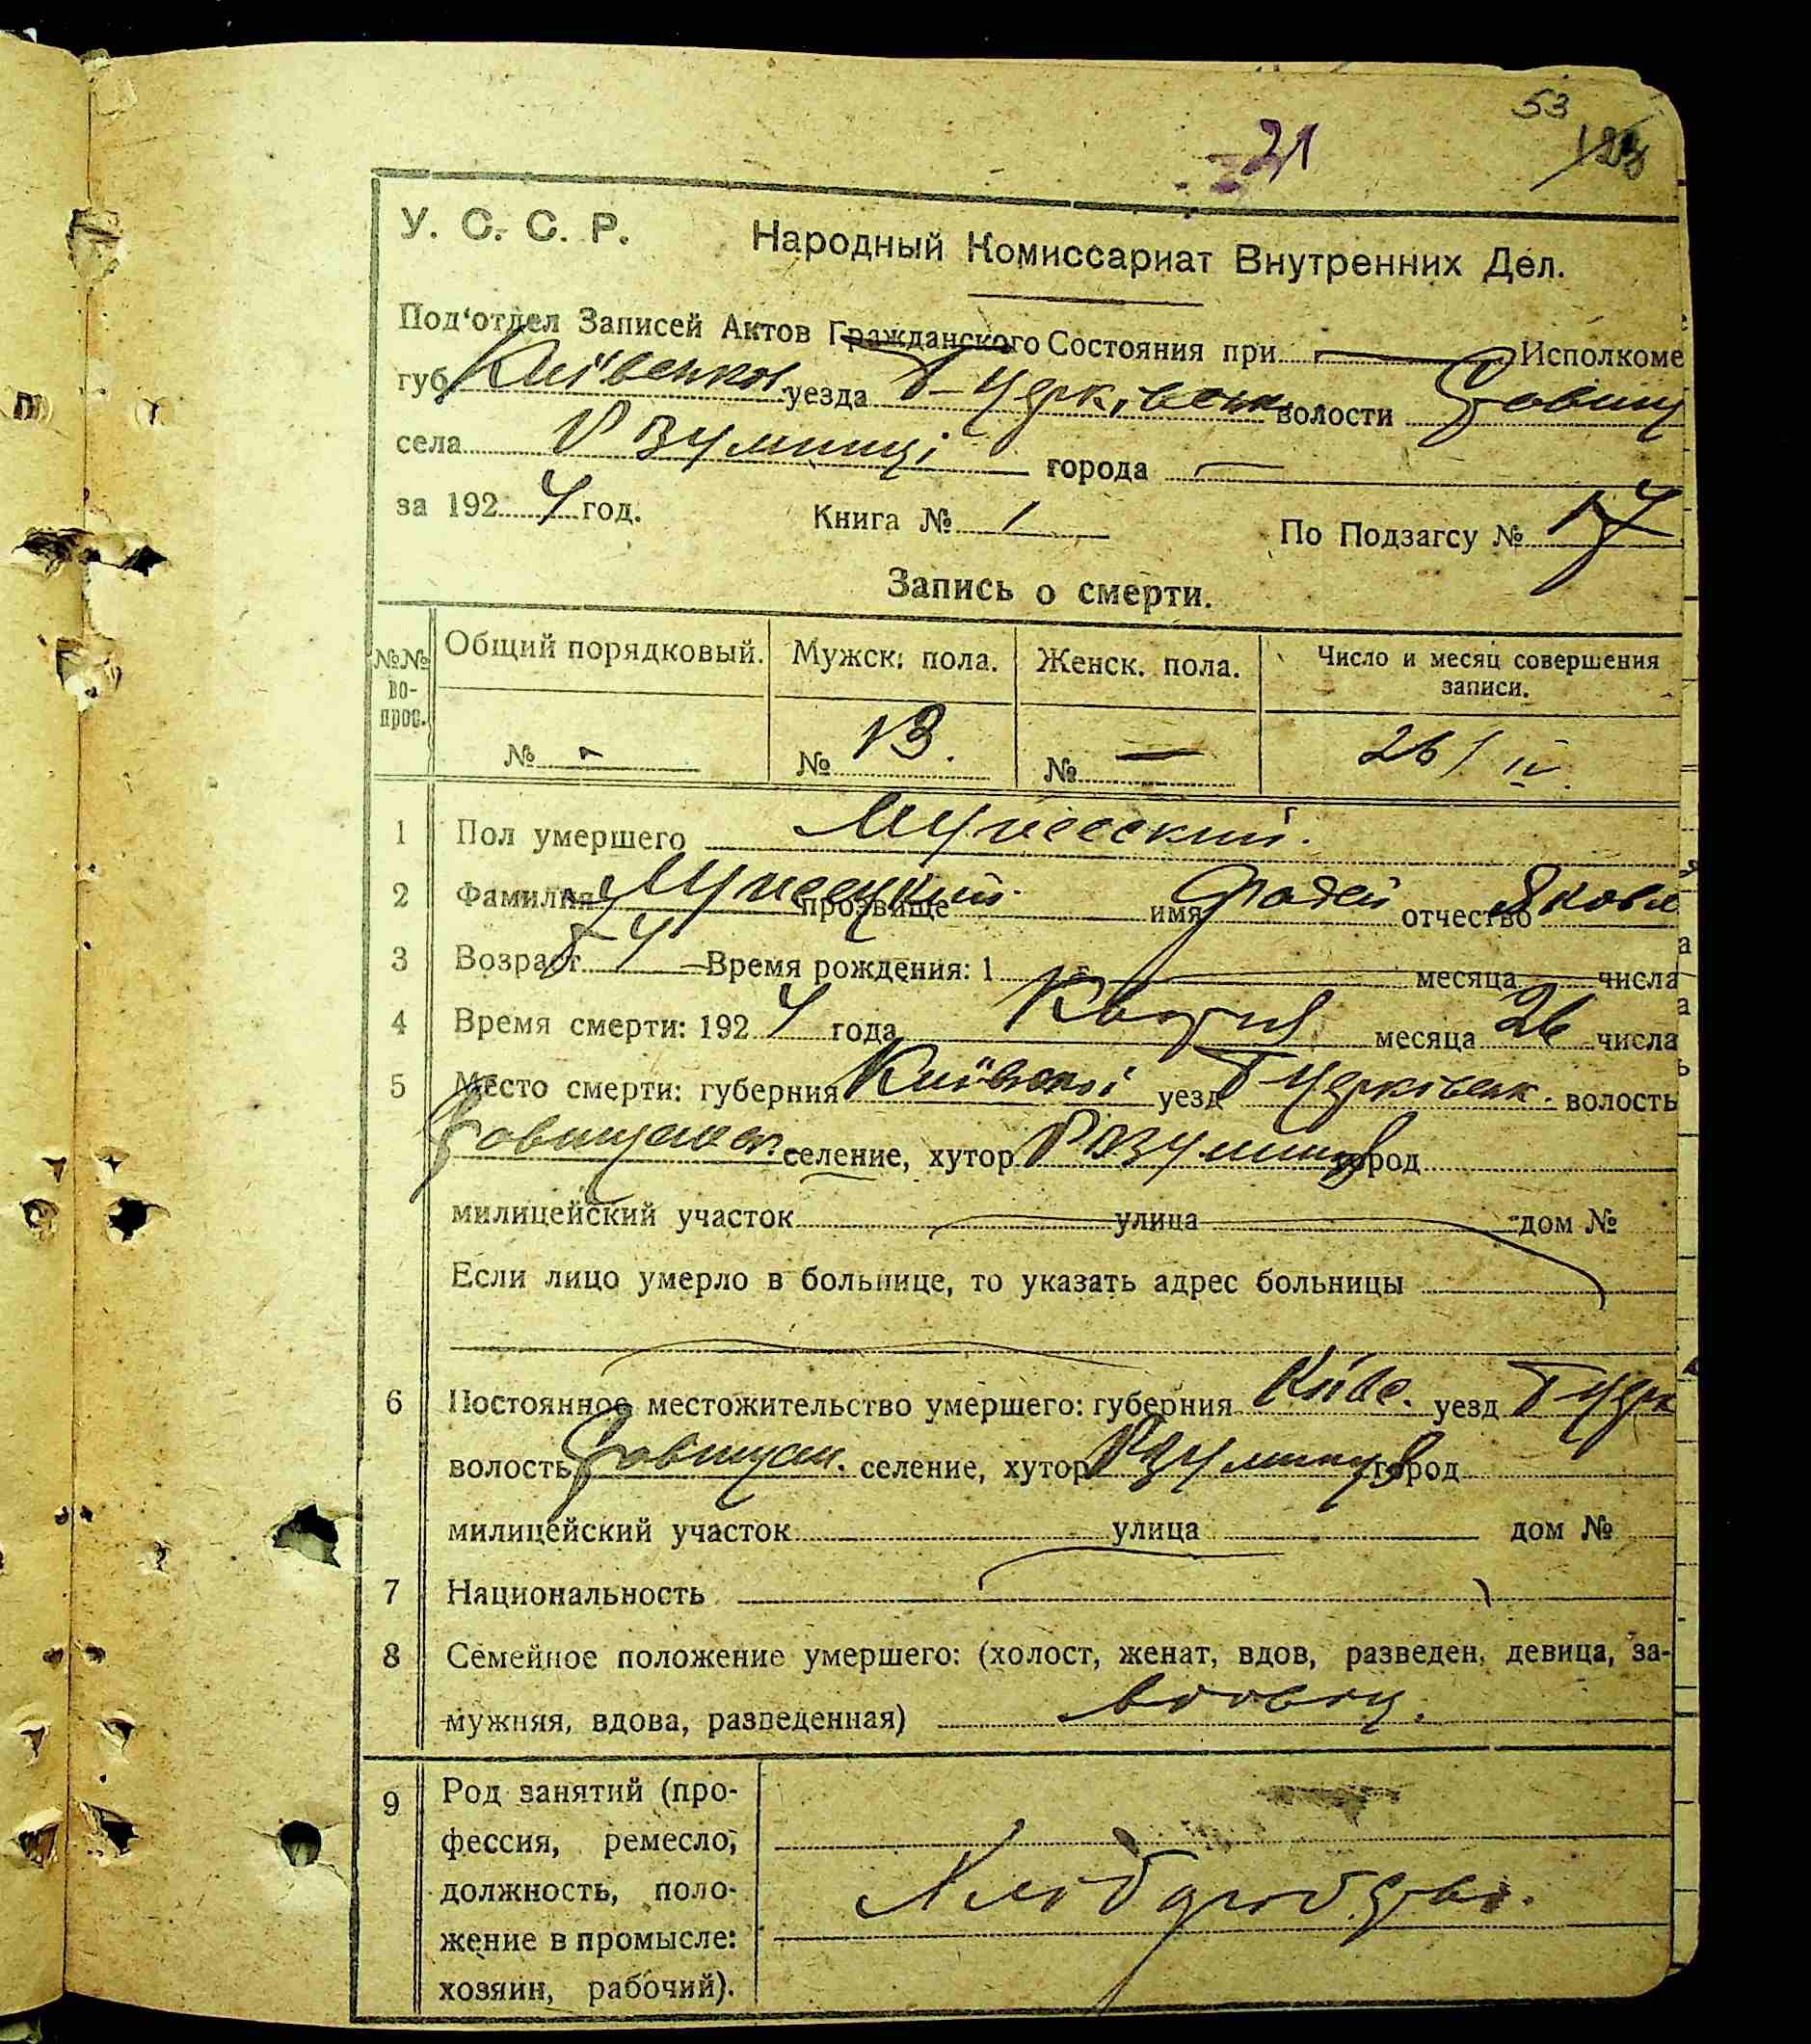 53
21
У. С. С. Р. Народный Комиссариат Внутренних Дел.
Под'отдел Записей Актов Гражданского Состояния при Исполкоме
губ. Київськ. уезда Б-Церківськ. волости
села города —
за 1924 год. Книга № 1 По Подзагсу № 17
Запись о смерти.
№№ во-прос. Общий порядковый. Мужск. пола. Женск. пола. Число и месяц совершения записи.
№ - № 13. № — 26/IV
1 Пол умершего Мужеский.
2 Фамилия прозвище имя Фадей отчество Яковл
3 Возраст Время рождения: 1 г. месяца числа
4 Время смерти: 1924 года Квітня месяца 26 числа
5 Место смерти: губерния Київської уезд Б Церківськ. волость
селение, хутор город
милицейский участок улица дом №
Если лицо умерло в больнице, то указать адрес больницы
6 Постоянное местожительство умершего: губерния Київс. уезд Б Церк
волость селение, хутор город
милицейский участок улица дом №
7 Национальность
8 Семейное положение умершего: (холост, женат, вдов, разведен, девица, за-
мужняя, вдова, разведенная) вдовец.
9 Род занятий (про-
фессия, ремесло,
должность, поло-
жение в промысле:
хозяин, рабочий).